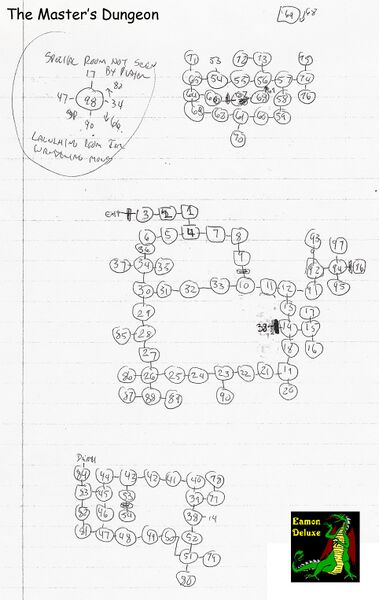 The Master's Dungeon
SPECIAL ROOM NOT SEEN
17 BY PLAYER
47 98 34
90
LAUNCHING ROOM FOR
WANDERING MONS
71 53 72 73
65 54 55 56 57 74
69 58 76
68 63 61 60 59
70
EXIT 3 2 1
6 5 4 7 8
36 9
37 34 35
30 31 32 33 10 11 12 91 92 94 96
93 97
95
29 13 17
85 28 38 14 15
27 18 16
86 26 25 24 23 22 21 19
87 88 89 90 20
84 44 43 42 41 40 78
83 45 53 39 77
82 46 54 38 14
81 47 48 49 50 52
51 79
80
Eamon
Deluxe